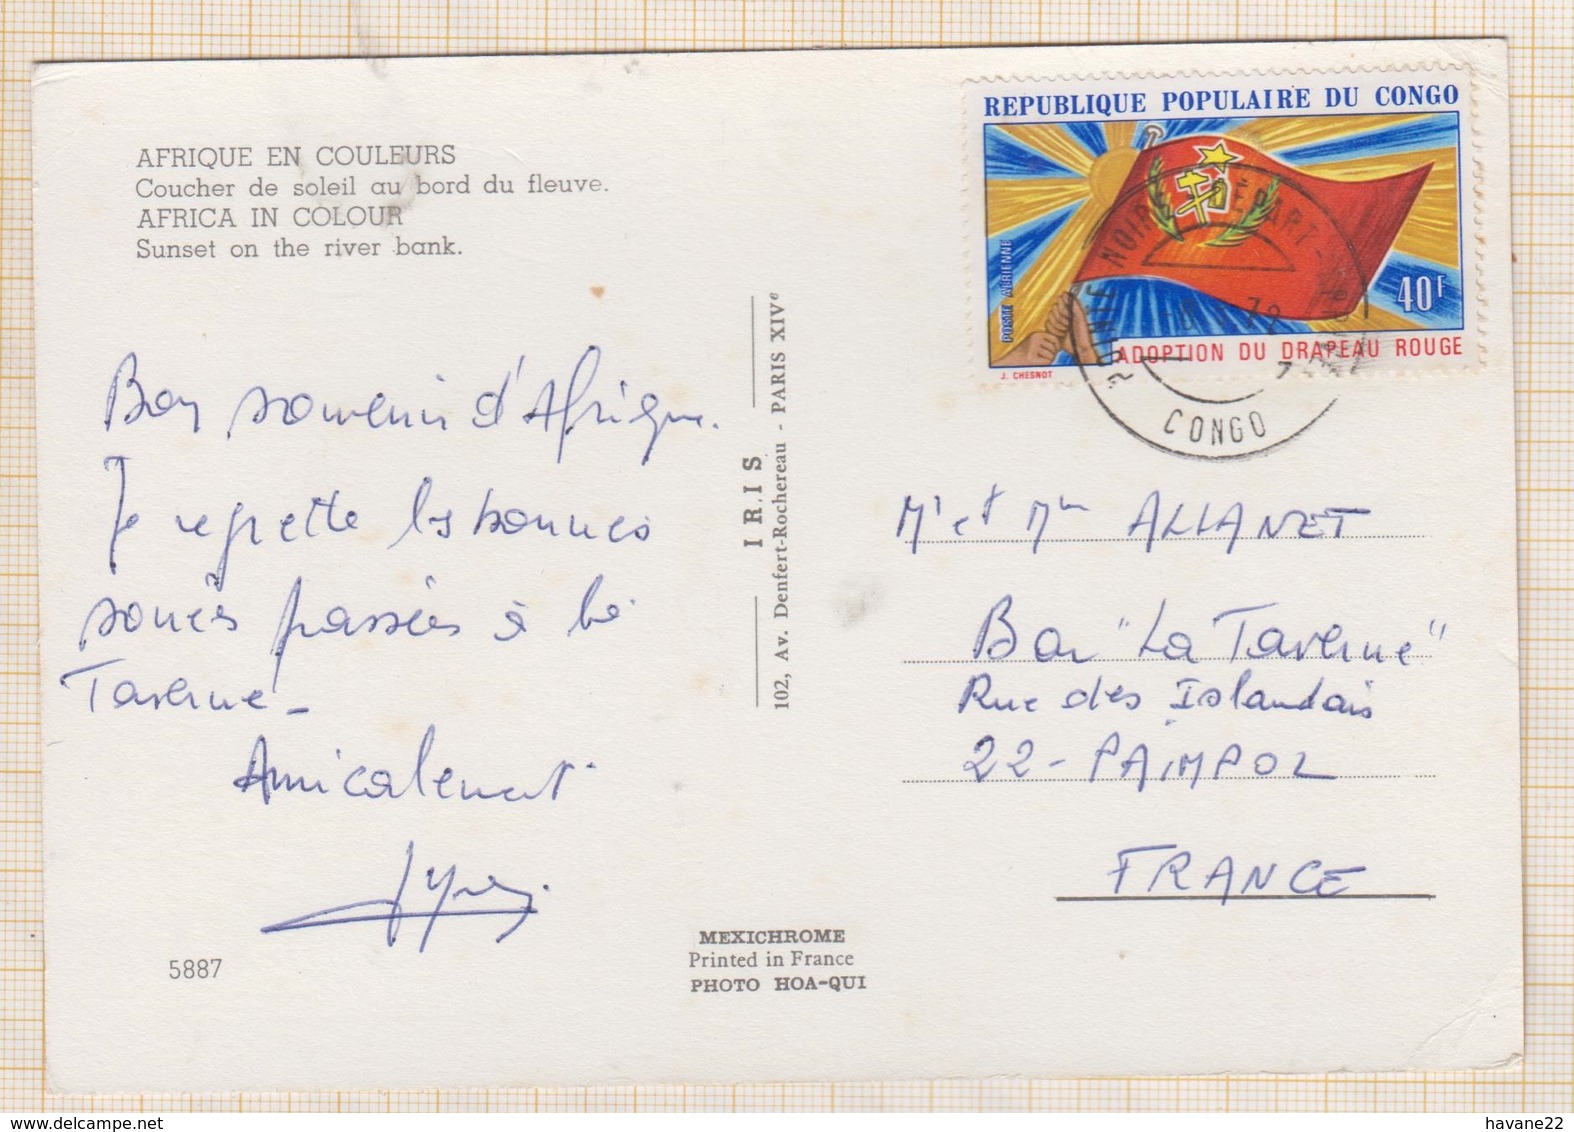 AFRIQUE EN COULEURS
Coucher de soleil au bord du fleuve.
AFRICA IN COLOUR
Sunset on the river bank.
Bon souvenir d'Afrique.
Je regrette les bonnes
soirées passées à la
Taverne -
Amicalement.
5887
IRIS
102, Av. Denfert-Rochereau - PARIS XIVe
MEXICHROME
Printed in France
PHOTO HOA-QUI
REPUBLIQUE POPULAIRE DU CONGO
POSTE AERIENNE
40F
ADOPTION DU DRAPEAU ROUGE
J. CHESNOT
POINTE NOIRE DEPART
CONGO
Mr et Mme ALLANET
Bar "La Taverne"
Rue des Islandais
22 - PAIMPOL
FRANCE
delcampe.net
havane22